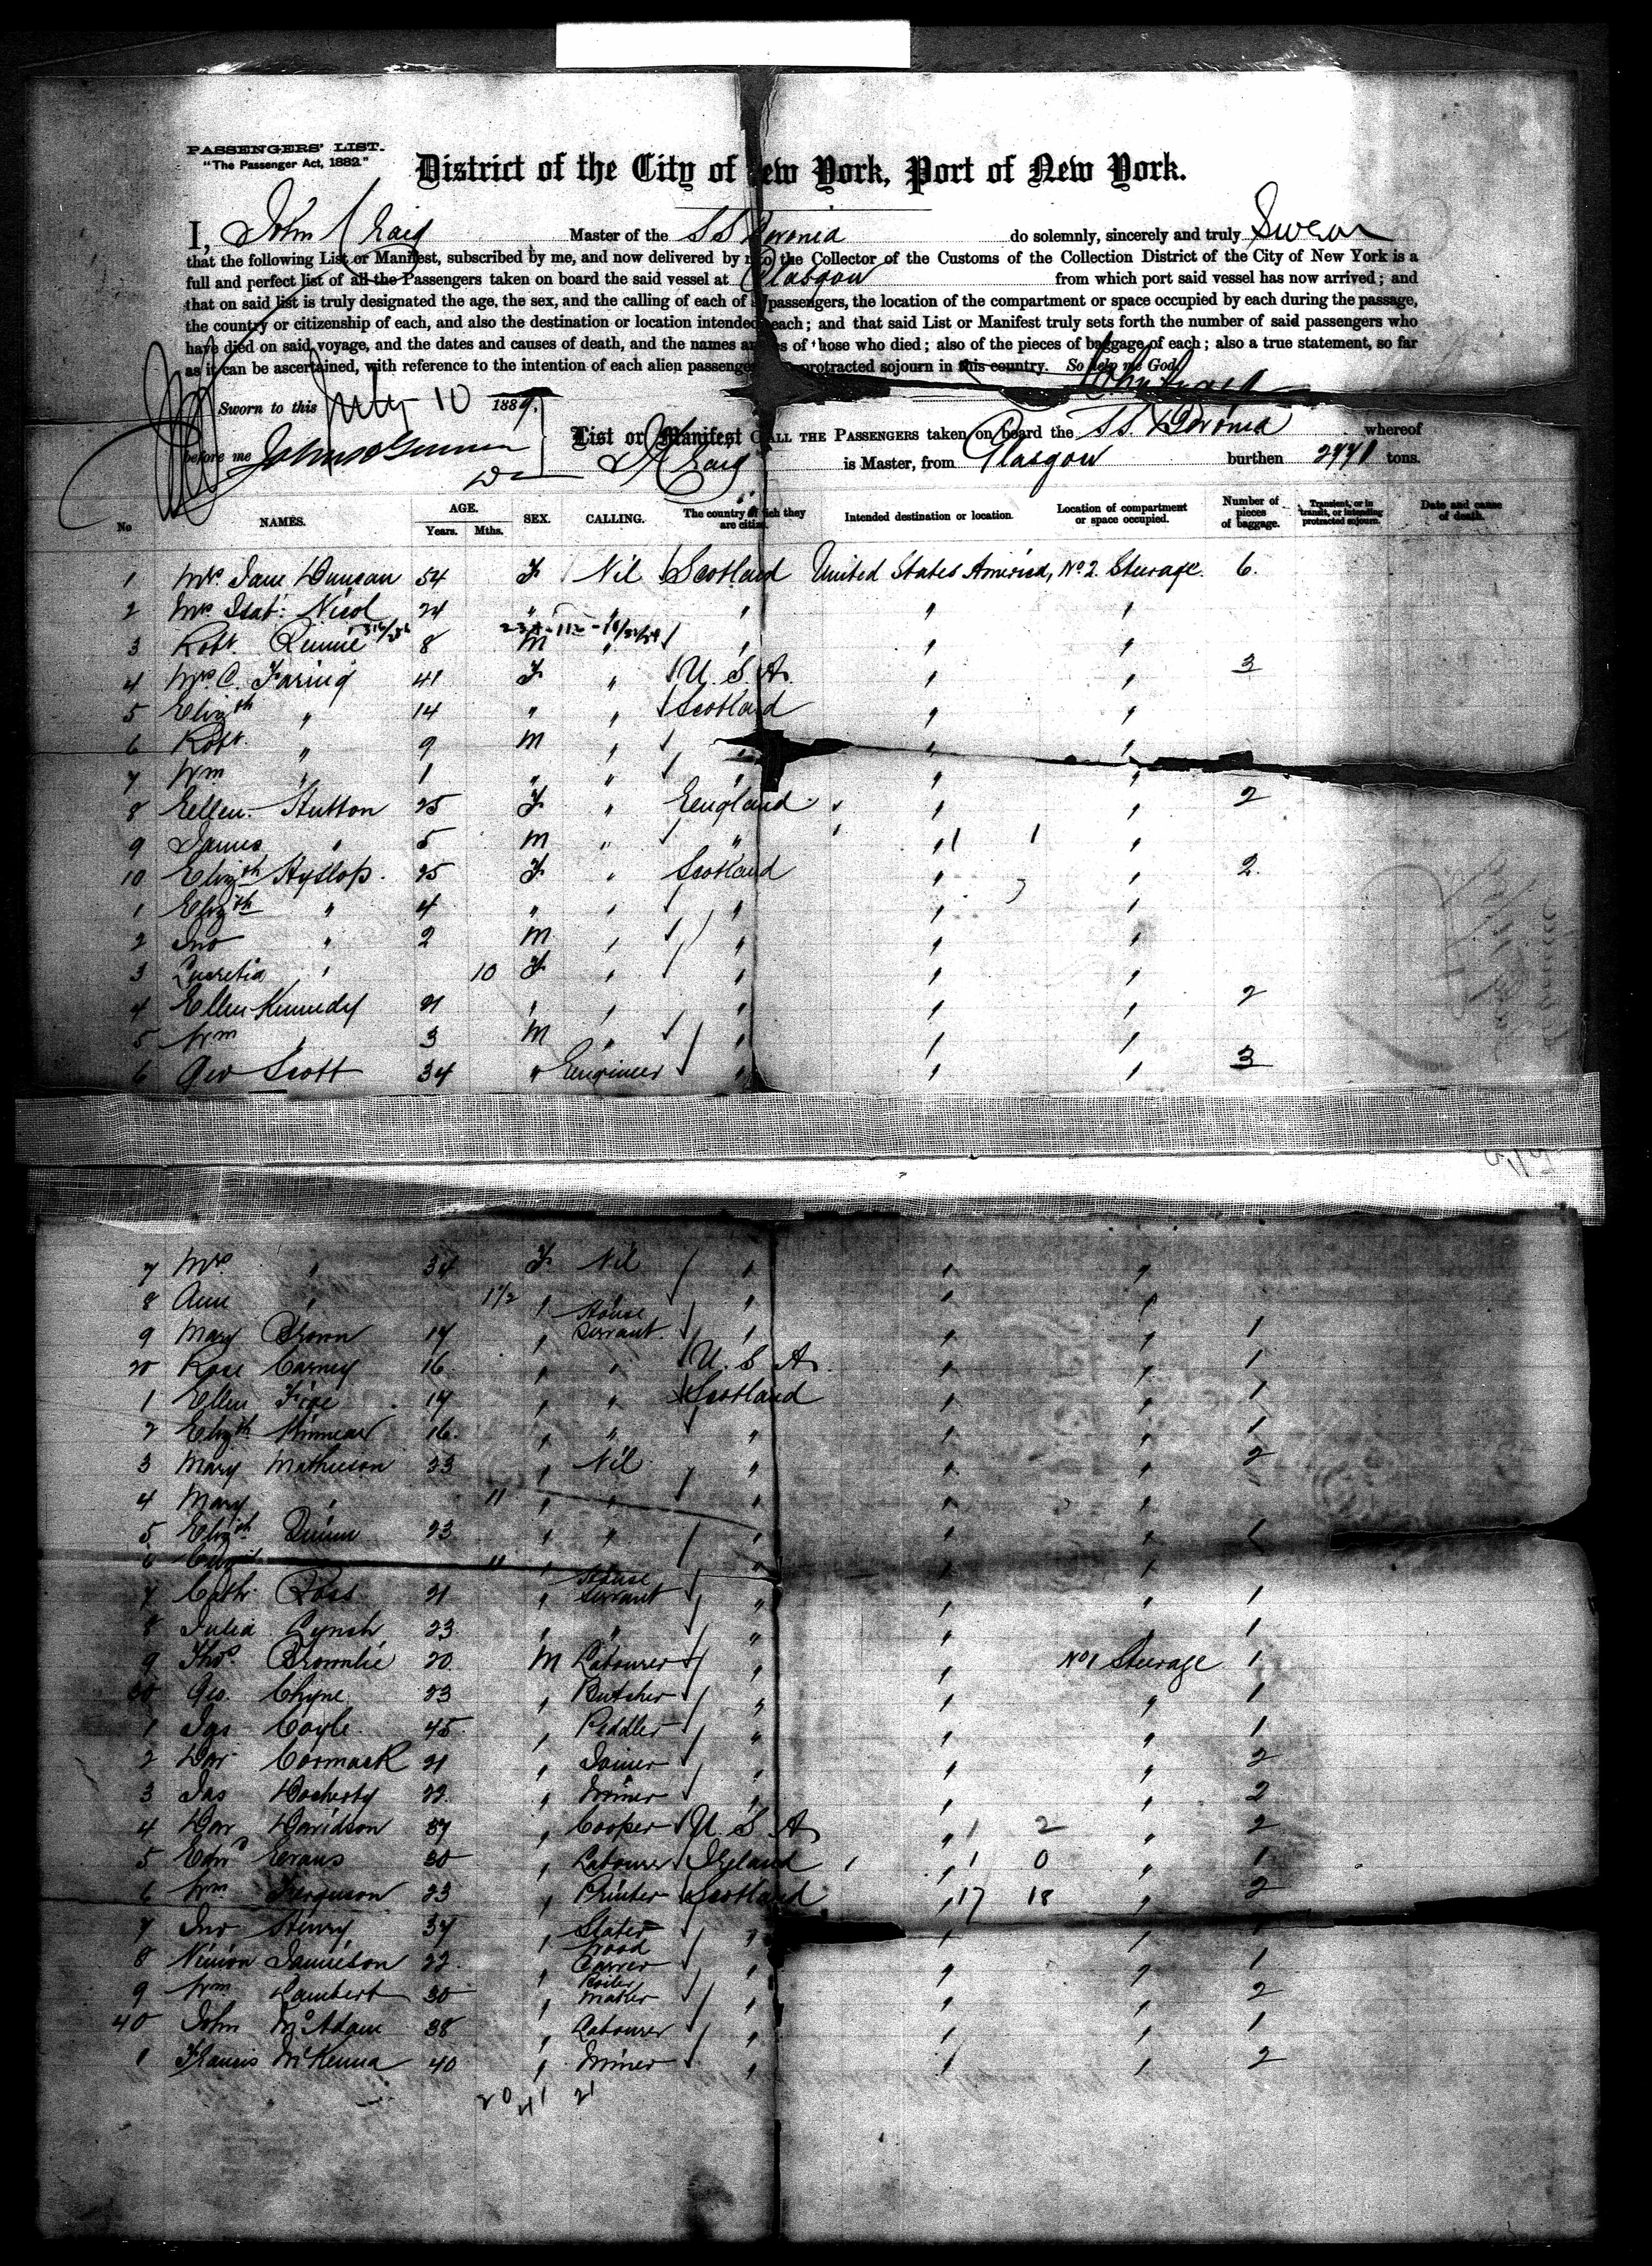 PASSENGERS' LIST.
"The Passenger Act, 1882."
District of the City of New York, Port of New York.
I, John Craig Master of the SS Devonia do solemnly, sincerely and truly Swear
that the following List or Manifest, subscribed by me, and now delivered by to the Collector of the Customs of the Collection District of the City of New York is a
full and perfect list of all the Passengers taken on board the said vessel at Glasgow from which port said vessel has now arrived; and
that on said list is truly designated the age, the sex, and the calling of each of passengers, the location of the compartment or space occupied by each during the passage,
the country or citizenship of each, and also the destination or location intended each; and that said List or Manifest truly sets forth the number of said passengers who
have died on said voyage, and the dates and causes of death, and the names of those who died; also of the pieces of baggage of each; also a true statement, so far
as it can be ascertained, with reference to the intention of each alien passenger protracted sojourn in this country. So help me God.
John Craig
Sworn to this July 10 1889.
List or Manifest ALL THE PASSENGERS taken on board the SS. Devonia whereof
before me
J Craig is Master, from Glasgow burthen 2771 tons.
No NAMES. AGE. Years. Mths. SEX. CALLING. The country which they are citiz Intended destination or location. Location of compartment or space occupied. Number of pieces of baggage. Transient, or in transit, or intending protracted sojourn. Date and cause of death.
1 Mrs Jane Duncan 54 F Nil Scotland United States America, No 2 Steerage. 6.
2 Mrs Isab: Nicol 24 " " " " "
3 Robt. Rennie 8 M " " " "
4 Mrs C. Faring 41 F " U. S. A. " " 3
5 Elizth " 14 " " Scotland " "
6 Robt. " 9 M " " " "
7 Wm " 1 " " " " "
8 Eellen Hutton 25 F " England " " 2
9 James " 5 M " " " "
10 Elizth Hyslop. 25 F " Scotland " " 2.
1 Elizth " 4 " " " " "
2 Jno " 2 M " " " "
3 Lucretia " 10 F " " " "
4 Ellen Kennedy 21 " " " " " 2
5 Wm " 3 M " " " "
6 Geo Scott 34 " Engineer " " " 3
7 Mrs. " 34 F Nil " " "
8 Ann " 1 1/2 " " " " "
9 Mary Brown 17 " House Servant " " " 1
20 Rose Carney 16 " " U. S. A. " " 1
1 Ellen Fige 17 " " Scotland " " 1
2 Elizth Kinnear 16. " " " " " 1
3 Mary Mathieson 23 " Nil " " " 2
4 Mary " 11 " " " " "
5 Elizth Quinn 23 " " " " " 1
6 11 " " " "
7 Cath. Ross 21 " House Servant " " " 1
8 Julia Lynch 23 " " " " " 1
9 Thos. Brownlie 20 M Labourer " " No 1 Steerage 1
30 Geo. Chyne 23 " Butcher " " " 1
1 Jas Coyle 45 " Peddler " " " 1
2 Dav Cormack 21 " Joiner " " " 2
3 Jas Docherty 22 " Miner " " " 2
4 Dav Davidson 37 " Cooper U. S. A. " " 2
5 Edwd Eevans 30 " Labourer Ireland " " 1
6 Wm Ferguson 23 " Printer Scotland " 17 18 " 2
7 Jno Henry 37 " Slater " " " 1
8 Ninion Jamieson 22 " Wood Carver " " " 1
9 Wm Lambert 30 " Boiler Maker " " " 2
40 John McAdam 38 " Labourer " " " 1
1 Francis McKenna 40 " Miner " " " 2
20 21